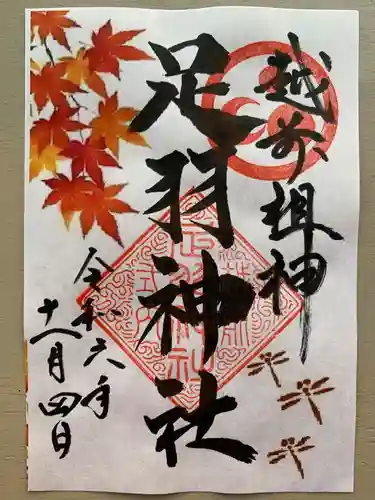 越前祖神
足羽神社
令和六年
十一月四日